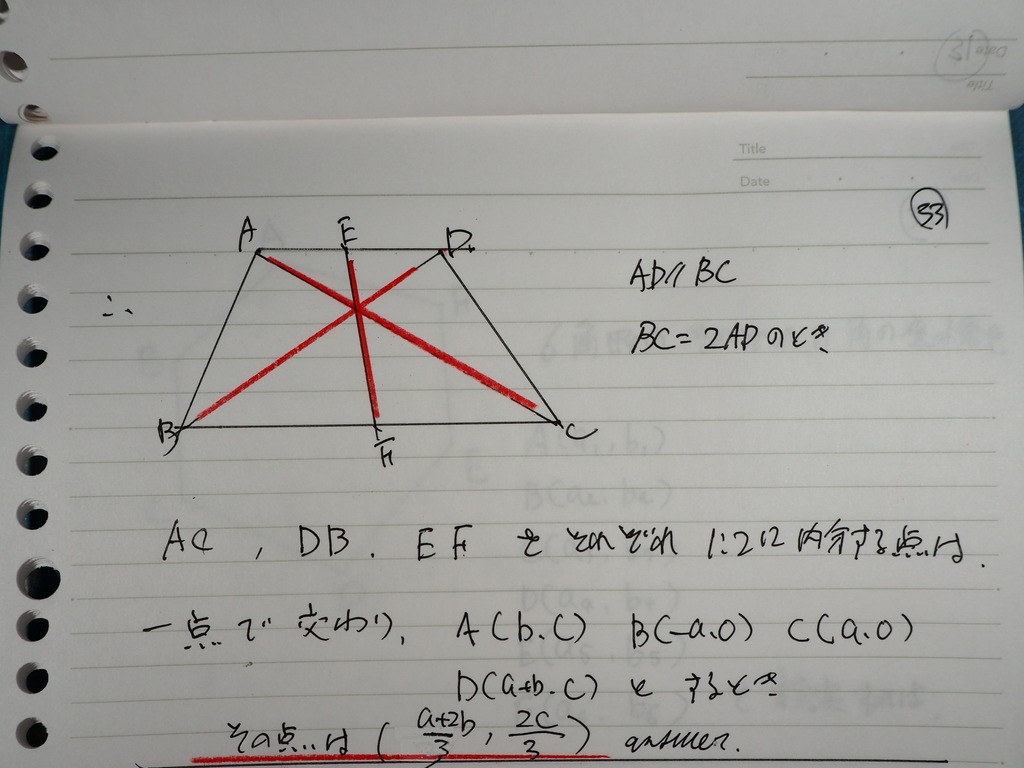 Title
Date
33
A E D
AD // BC
∴
BC = 2AD のとき
B F C
AC , DB . EF を それぞれ 1:2に 内分する点は.
一点で 交わり, A(b.c) B(-a.0) C(a.0)
D(a+b.c) と するとき
その点は ( a+2b/3 , 2c/3 ) answer.